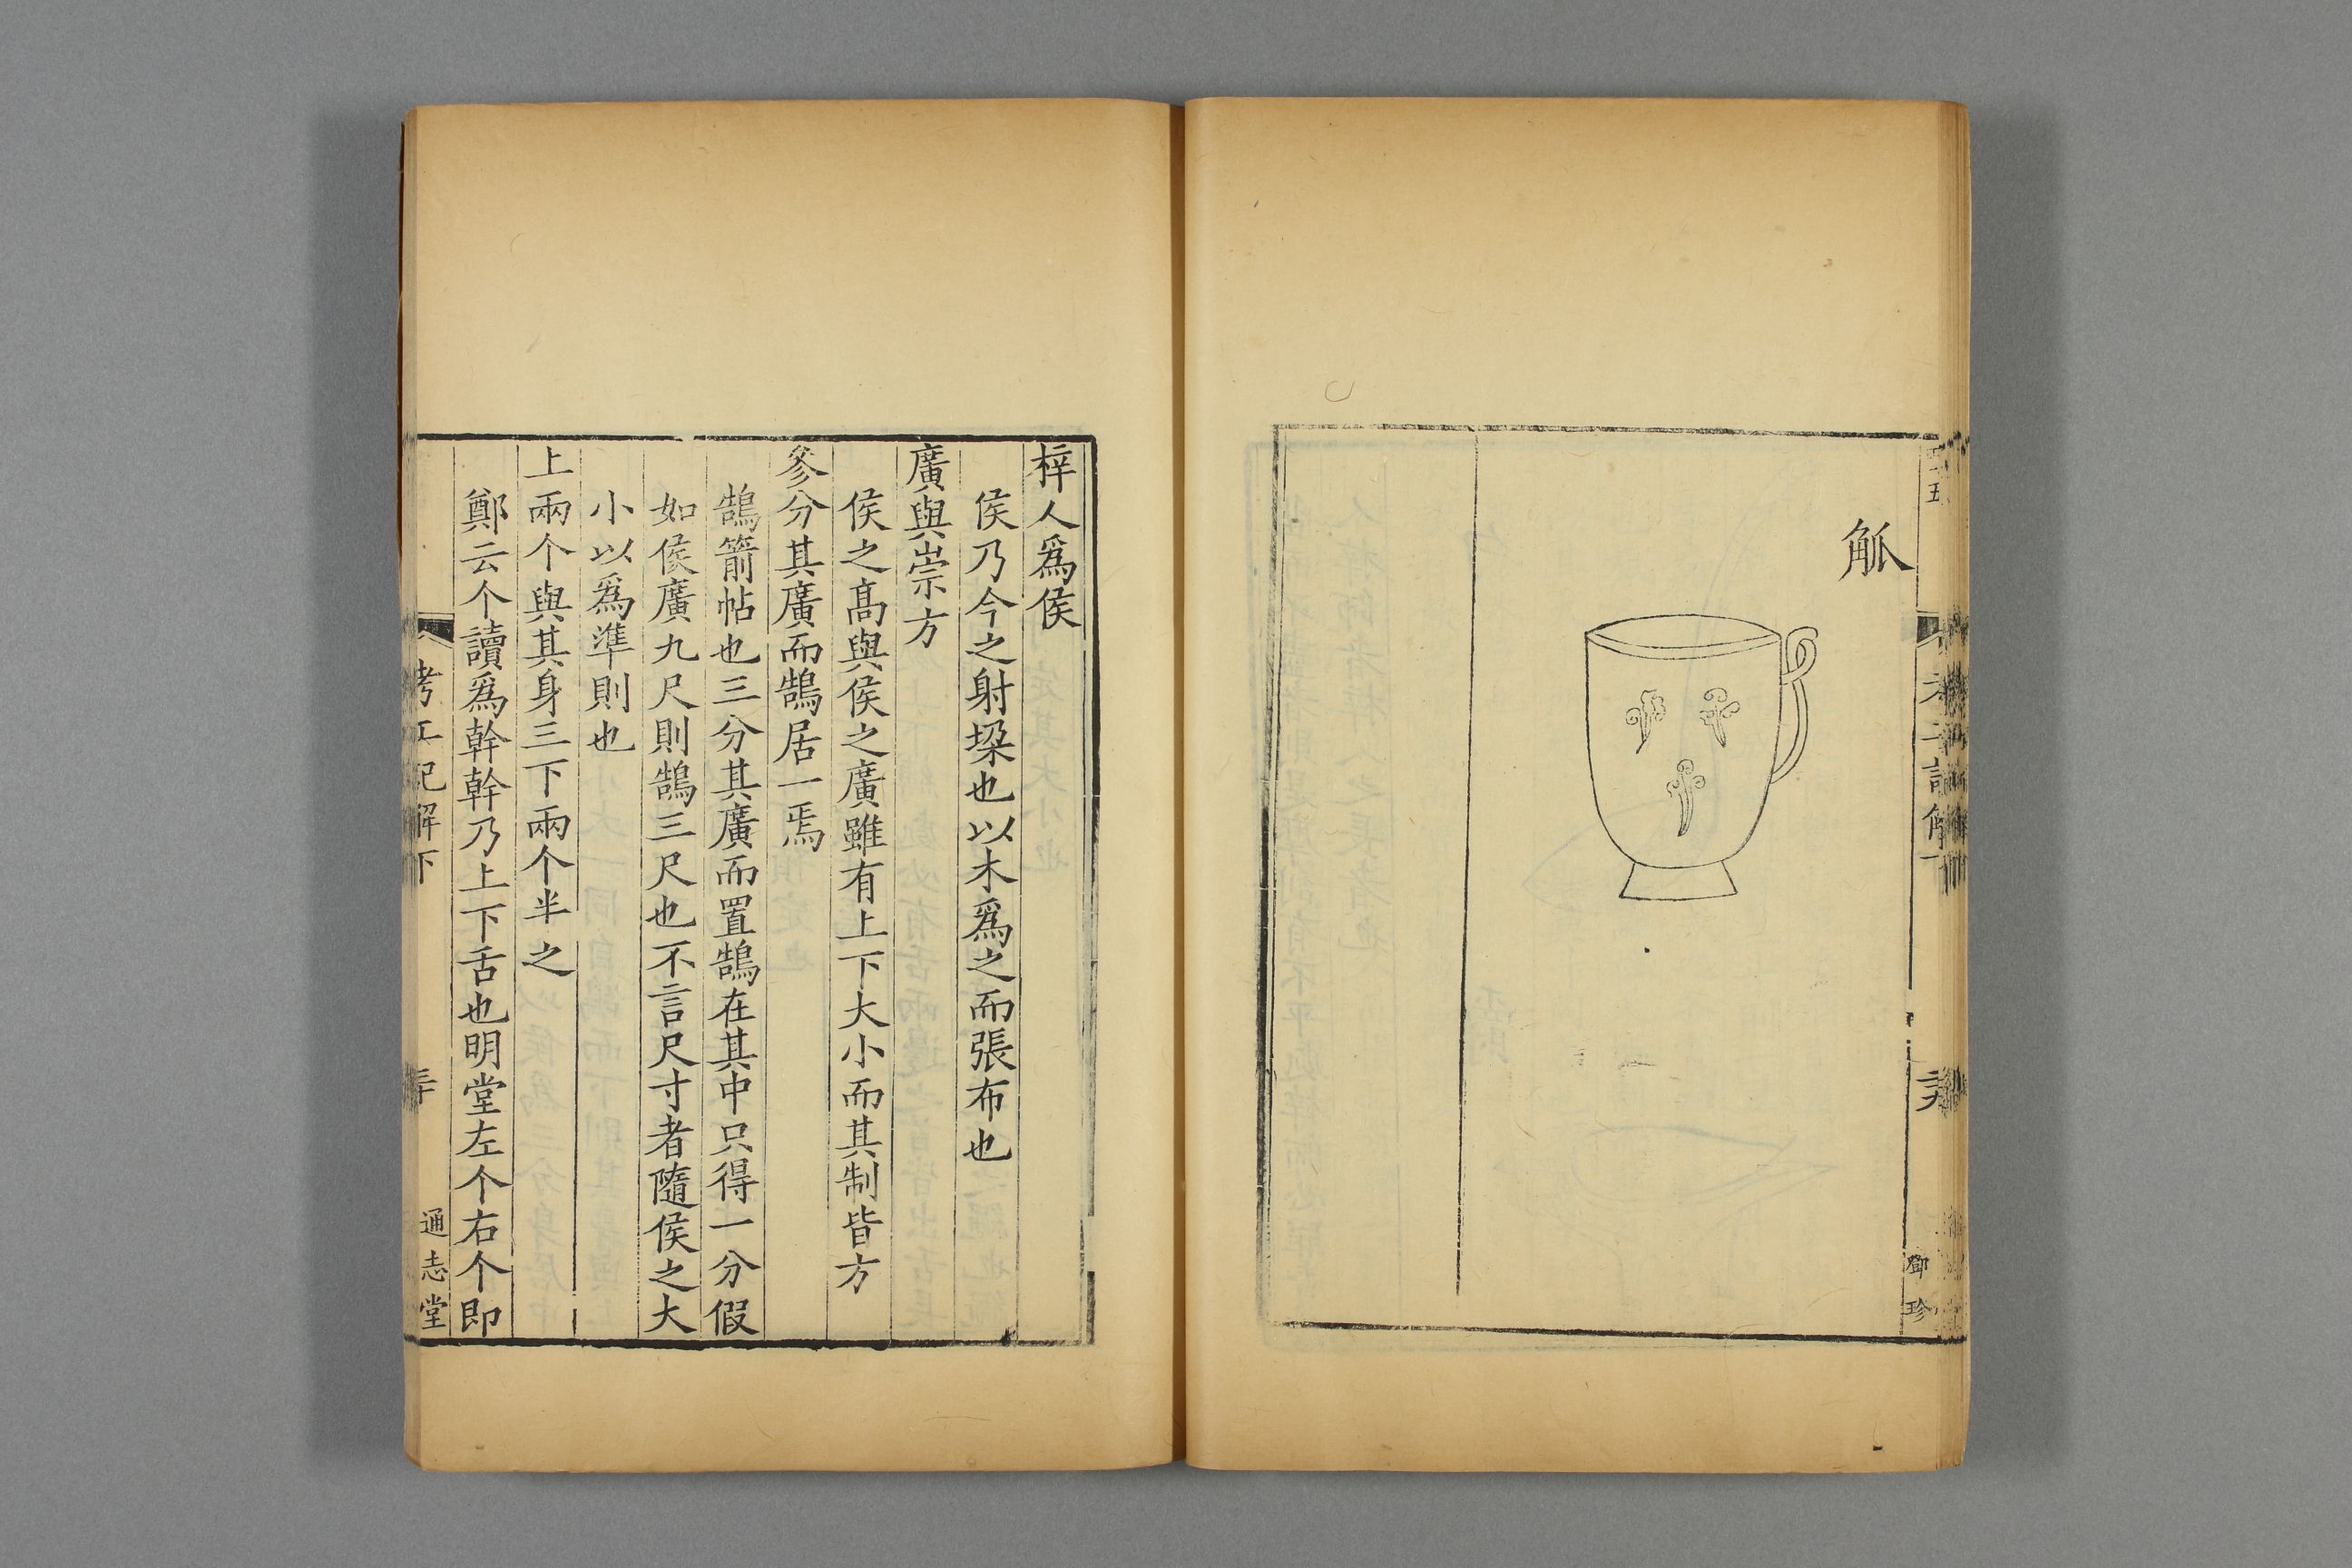 觚
鄧珍
梓人爲侯
侯乃今之射垜也以木爲之而張布也
廣與崇方
侯之高與侯之廣雖有上下大小而其制皆方
參分其廣而鵠居一焉
鵠箭帖也三分其廣而置鵠在其中只得一分假
如侯廣九尺則鵠三尺也不言尺寸者隨侯之大
小以爲準則也
上兩个與其身三下兩个半之
鄭云个讀爲幹幹乃上下舌也明堂左个右个即
考工記解下
通志堂